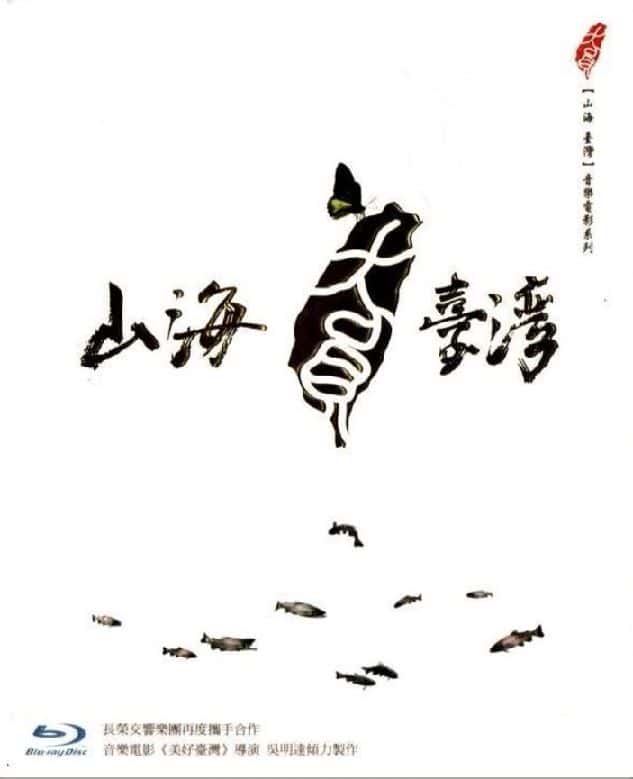 【山海 臺灣】音樂電影系列
山海 臺湾
Blu-ray Disc
長榮交響樂團再度攜手合作
音樂電影《美好臺灣》導演 吳明達傾力製作